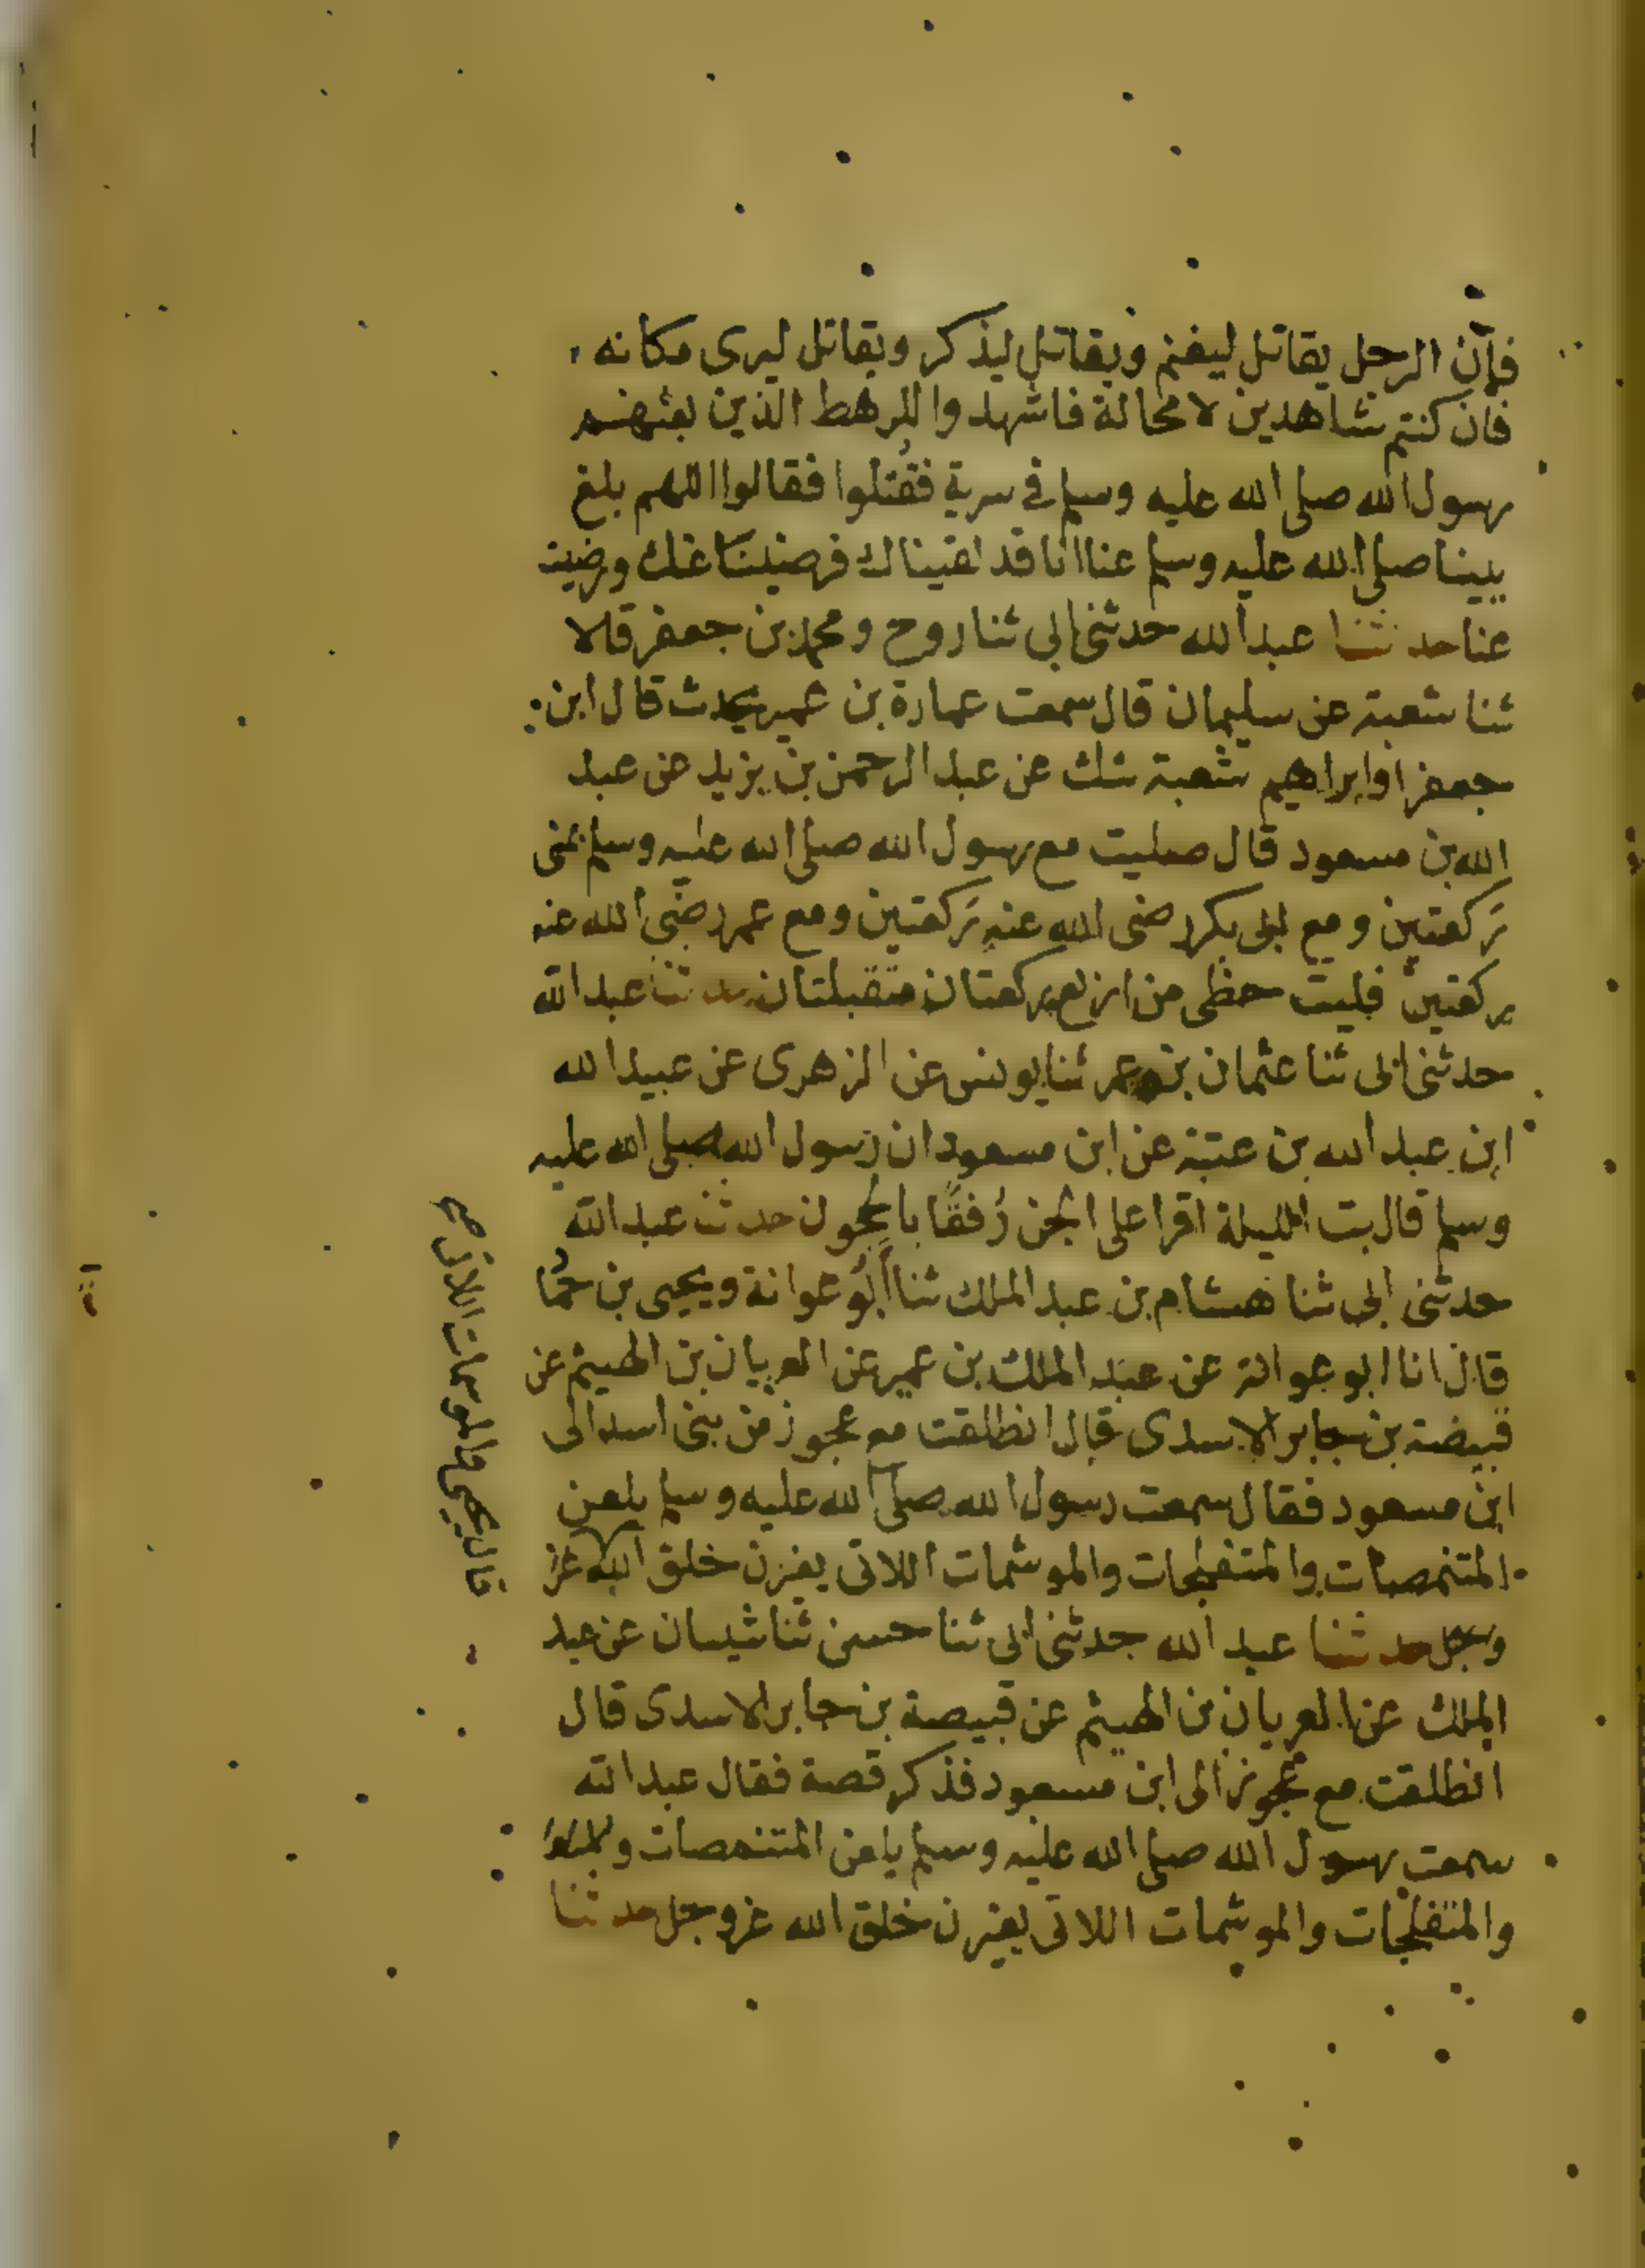 فان الرجل يقاتل ليغنم ويقاتل ليذكر ويقاتل ليرى مكانه
فان كنتم شاهدين لا محالة فاشهدوا للرهط الذين بعثهم
رسول الله صلى الله عليه وسلم في سرية فقُتلوا فقالوا اللهم بلغ
نبينا صلى الله عليه وسلم عنا انا قد لقيناك فرضينا عنك ورضيت
عنا حدثنا عبد الله حدثني ابي ثنا روح ومحمد بن جعفر قالا
ثنا شعبة عن سليمان قال سمعت عمارة بن عمير يحدث قال ابن
جعفر او ابراهيم شعبة شك عن عبد الرحمن بن يزيد عن عبد
الله بن مسعود قال صليت مع رسول الله صلى الله عليه وسلم بمنى
ركعتين ومع ابى بكر رضى الله عنه ركعتين ومع عمر رضى الله عنه
ركعتين فليت حظى من اربع ركعتان متقبلتان حدثنا عبد الله
حدثنى ابى ثنا عثمان بن عمر ثنا يونس عن الزهرى عن عبيد الله
ابن عبد الله بن عتبة عن ابن مسعود ان رسول الله صلى الله عليه
وسلم قال بت الليلة اقرا على الجن رُفقًا بالحجون حدثنا عبد الله
حدثنى ابى ثنا هشام بن عبد الملك ثنا أبو عوانة ويحيى بن حما
قال انا ابو عوانة عن عبد الملك بن عمير عن العريان بن الهيثم عن
قبيضة بن جابر الاسدى قال انطلقت مع عجوز من بنى اسد الى
ابن مسعود فقال سمعت رسول الله صلى الله عليه وسلم يلعن
المتنمصات والمتفلجات والموشمات اللاتى يغيرن خلق الله عز
وجل حدثنا عبد الله حدثنى ابى ثنا حسن ثنا شيبان عن عبد
الملك عن العريان بن الهيثم عن قبيصة بن جابر الاسدى قال
انطلقت مع عجوز الى ابن مسعود فذكر قصة فقال عبد الله
سمعت رسول الله صلى الله عليه وسلم يلعن المتنمصات
والمتفلجات والموشمات اللاتى يغيرن خلق الله عز وجل حدثنا
قال يحيى والموشمات اللاتى